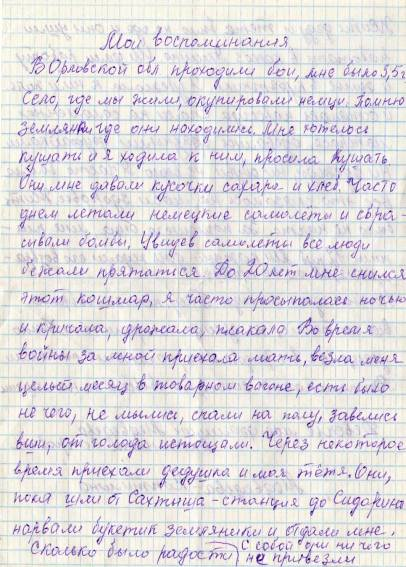 Мои воспоминания
В Орловской обл проходили бои, мне было 3,5 г
Село, где мы жили, окупировали немцы. Помню
землянки где они находились. Мне хотелось
кушать и я ходила к ним, просила кушать.
Они мне давали кусочки сахара и хлеб. Часто
днем летали немецкие самолёты и сбра-
сывали бомбы, Увидев самолеты все люди
бежали прятатися. До 20 лет мне снился
этот кошмар, я часто просыпалась ночью
и кричала, дрожала, плакала Во время
войны за мной приехала мать, везла меня
целый месяц в товарном вагоне, есть было
не чего, не мылись, спали на полу, завелись
вши, от голода истощали. Через некоторое
время приехали дедушка и моя тётя. Они,
пока шли от Сахтыша - станция до Сидорина
нарвали букетик земляники и отдали мне.
Сколько было радости (с собой они ни чего
не привезли